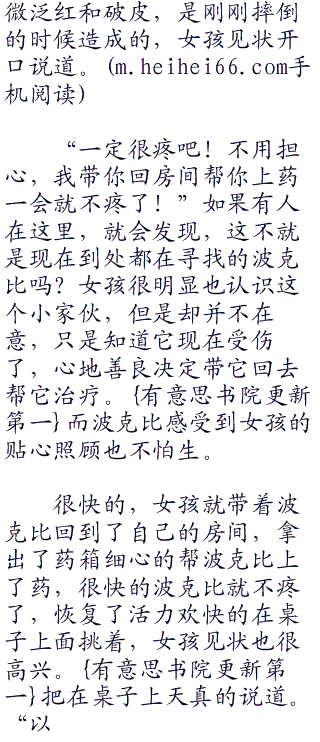 微泛红和破皮，是刚刚摔倒
的时候造成的，女孩见状开
口说道。(m.heihei66.com手
机阅读)
“一定很疼吧！不用担
心，我带你回房间帮你上药
一会就不疼了！”如果有人
在这里，就会发现，这不就
是现在到处都在寻找的波克
比吗？女孩很明显也认识这
个小家伙，但是却并不在
意，只是知道它现在受伤
了，心地善良决定带它回去
帮它治疗。{有意思书院更新
第一}而波克比感受到女孩的
贴心照顾也不怕生。
很快的，女孩就带着波
克比回到了自己的房间，拿
出了药箱细心的帮波克比上
了药，很快的波克比就不疼
了，恢复了活力欢快的在桌
子上面挑着，女孩见状也很
高兴。{有意思书院更新第
一}把在桌子上天真的说道。
“以